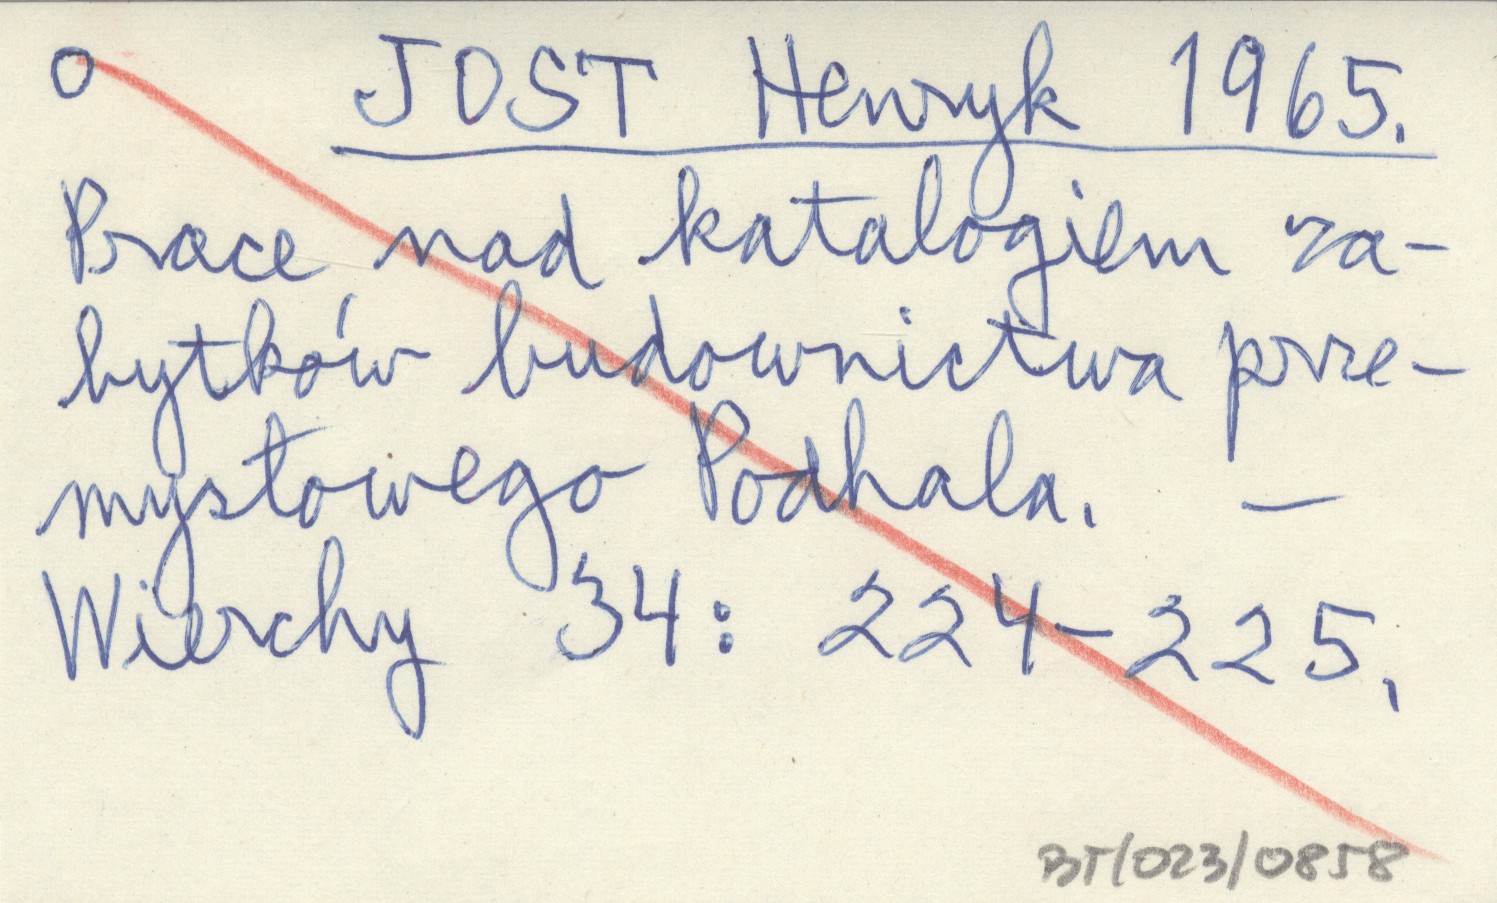 o JOST Henryk 1965.
Prace nad katalogiem za-
bytków budownictwa prze-
mysłowego Podhala. —
Wierchy 34: 224-225.
BT/023/0858